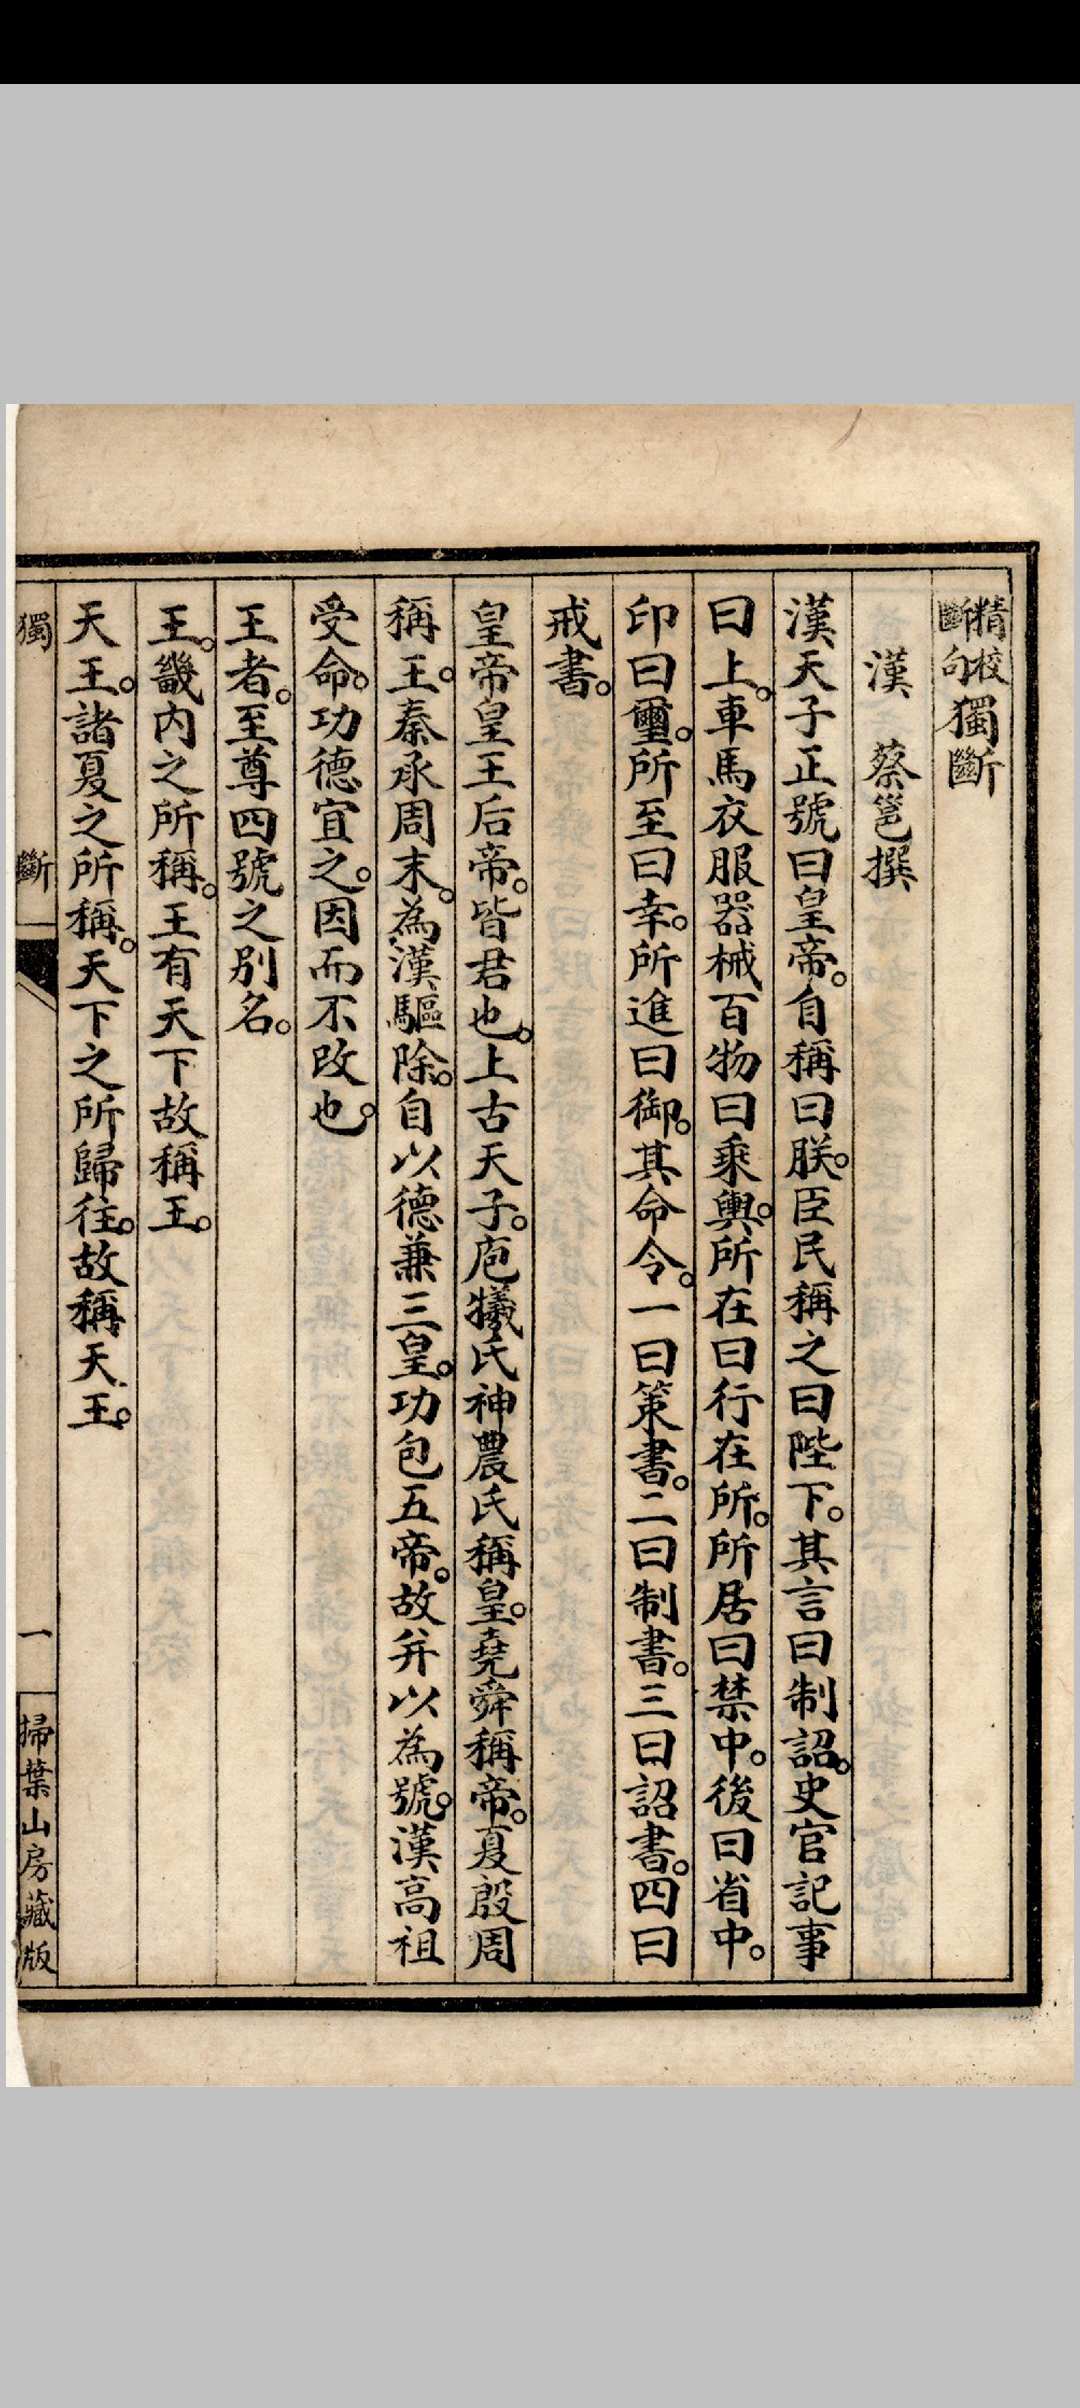 精校斷句獨斷
漢 蔡邕撰
漢天子正號曰皇帝。自稱曰朕。臣民稱之曰陛下。其言曰制詔。史官記事
曰上。車馬衣服器械百物曰乘輿。所在曰行在所。所居曰禁中。後曰省中。
印曰璽。所至曰幸。所進曰御。其命令。一曰策書。二曰制書。三曰詔書。四曰
戒書。
皇帝皇王后帝。皆君也。上古天子。庖犧氏神農氏稱皇。堯舜稱帝。夏殷周
稱王。秦承周末。為漢驅除。自以德兼三皇。功包五帝。故并以為號。漢高祖
受命。功德宜之。因而不改也。
王者。至尊四號之別名。
王。畿內之所稱。王有天下故稱王。
天王。諸夏之所稱。天下之所歸往。故稱天王。
獨斷 一 掃葉山房藏版